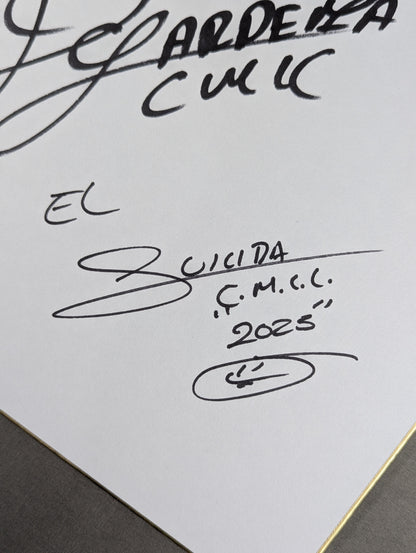 GARDENIA
CMLL
EL
SUICIDA
C.M.L.L.
"2025"